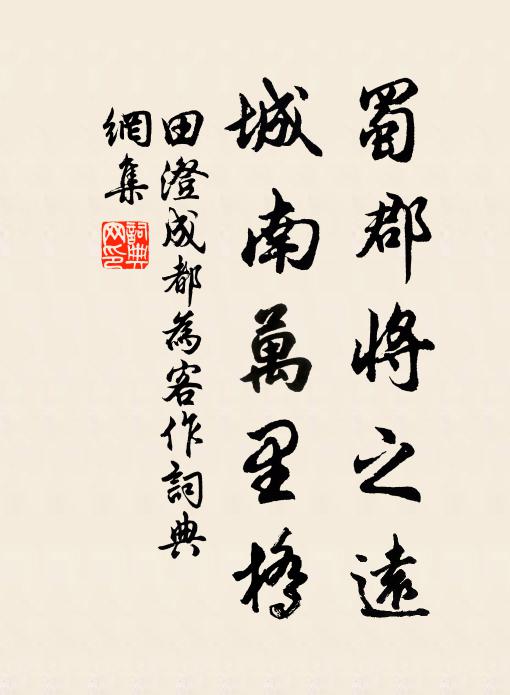 蜀郡將之遠
城南萬里橋
田澄成都為客作詞典
網集
詞典網印